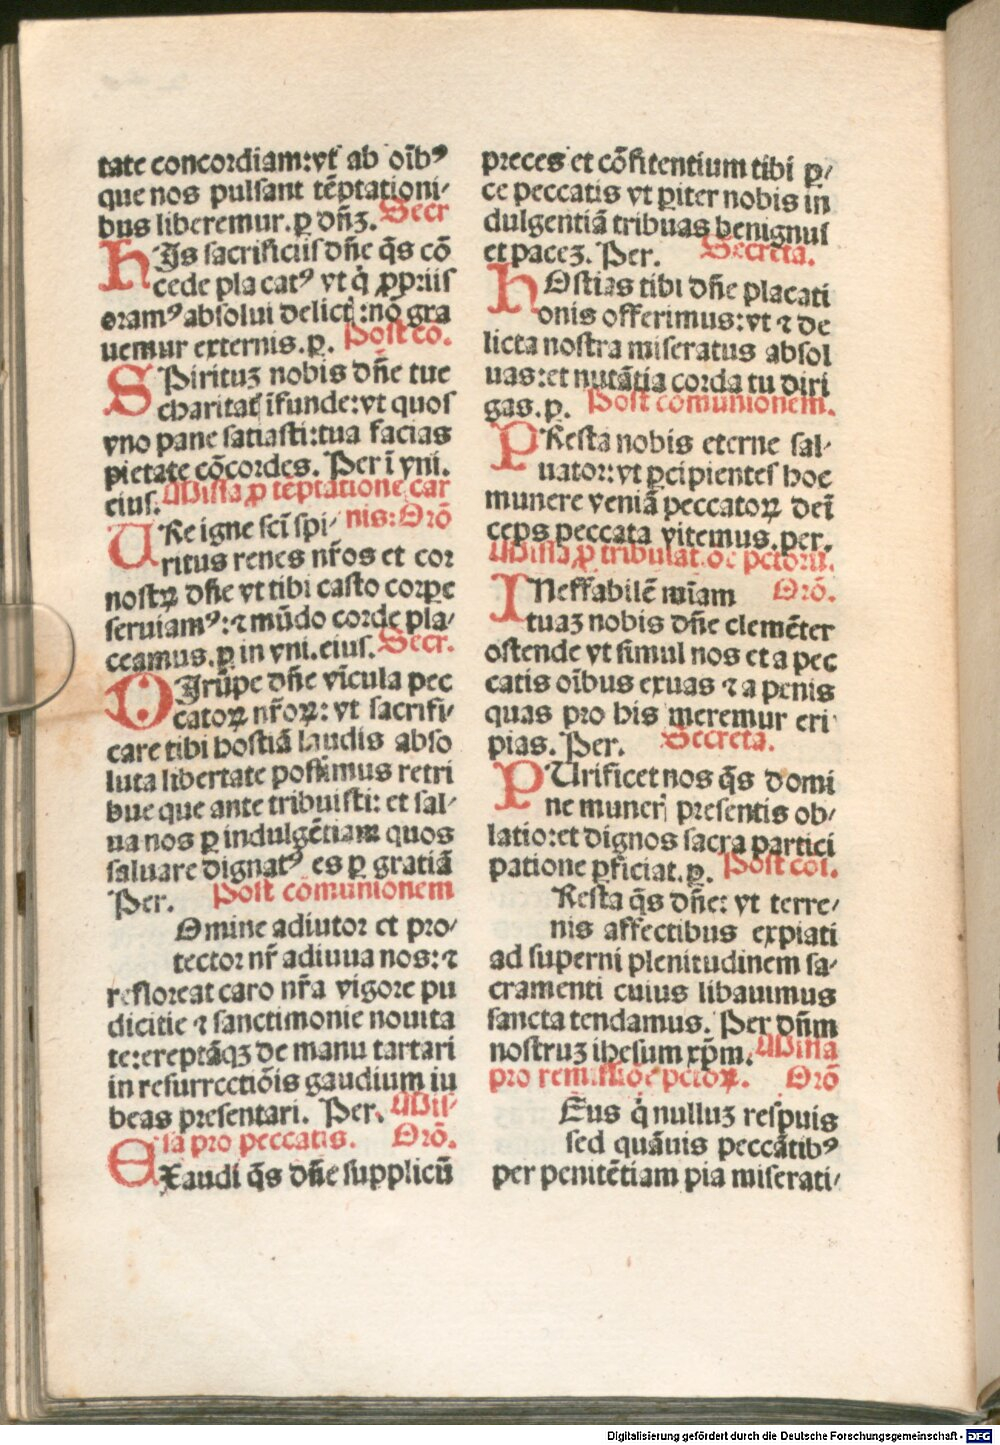 tate concordiam:vt ab oībꝰ
que nos pulsant tēptationi⸗
bus liberemur.ꝑ dn̄ꝫ. Secr
HIs sacrificiis dn̄e q̄s cō
cede pla catꝰ vt q̇ ꝓpriis
oramꝰ absolui delict :nō gra
uemur externis.ꝑ. Post co.
SPirituꝫ nobis dn̄e tue
charitat īfunde:vt quos
vno pane satiasti:tua facias
pietate cōcordes. Per ī vni.
eius. Missa ꝓ tēptatione car
nis: Orō
URe igne scī spi⸗
ritus renes nr̄os et cor
nostꝝ dn̄e vt tibi casto corꝑe
seruiamꝰ: ⁊ mūdo corde pla⸗
ceamus.ꝑ in vni.eius. Secr.
DIrūpe dn̄e vīcula pec
catoꝝ nr̄oꝝ: vt sacrifi⸗
care tibi hostiā laudis abso
luta libertate possimus retri
bue que ante tribuisti: et sal⸗
ua nos ꝑ indulgētiam quos
saluare dignatꝰ es ꝑ gratiā
Per. Post cōmunionem
Omine adiutor et pro⸗
tector nr̄ adiuua nos: ⁊
refloreat caro nr̄a vigore pu
dicitie ⁊ sanctimonie nouita
te:ereptāqꝫ de manu tartari
in resurrectiōis gaudium iu
beas presentari. Per. Mis⸗
sa pro peccatis. Orō.
EXaudi q̄s dn̄e supplicū
preces et cōfitentium tibi ꝑ⸗
ce peccatis vt ꝑiter nobis in
dulgentiā tribuas benignus
et paceꝫ. Per. Secreta.
HOstias tibi dn̄e placati
onis offerimus:vt ⁊ de
licta nostra miseratus absol
uas:et nutātia corda tu diri
gas.ꝑ. Post comunionem.
PResta nobis eterne sal⸗
uator:vt ꝑcipientes hoc
munere veniā peccatoꝝ deī
ceps peccata vitemus.per.
Missa ꝓ tribulat.oe petorū.
INeffabilē mīam Orō.
tuaꝫ nobis dn̄e clemēter
ostende vt simul nos et a pec
catis oībus exuas ⁊ a penis
quas pro his meremur eri
pias. Per. Secreta.
PUrificet nos q̄s domi
ne muner presentis ob⸗
latio:et dignos sacra partici
patione ꝑficiat.ꝑ. Post coi.
Resta q̄s dn̄e: vt terre⸗
nis affectibus expiati
ad superni plenitudinem sa⸗
cramenti cuius libauimus
sancta tendamus. Per dn̄m
nostruꝫ ihesum xp̄m. Missa
pro remissiōe petoꝝ. Orō
Eus q̇ nulluꝫ respuis
sed quāuis peccātibꝰ
per penitētiam pia miserati⸗
Digitalisierung gefördert durch die Deutsche Forschungsgemeinschaft - DFG